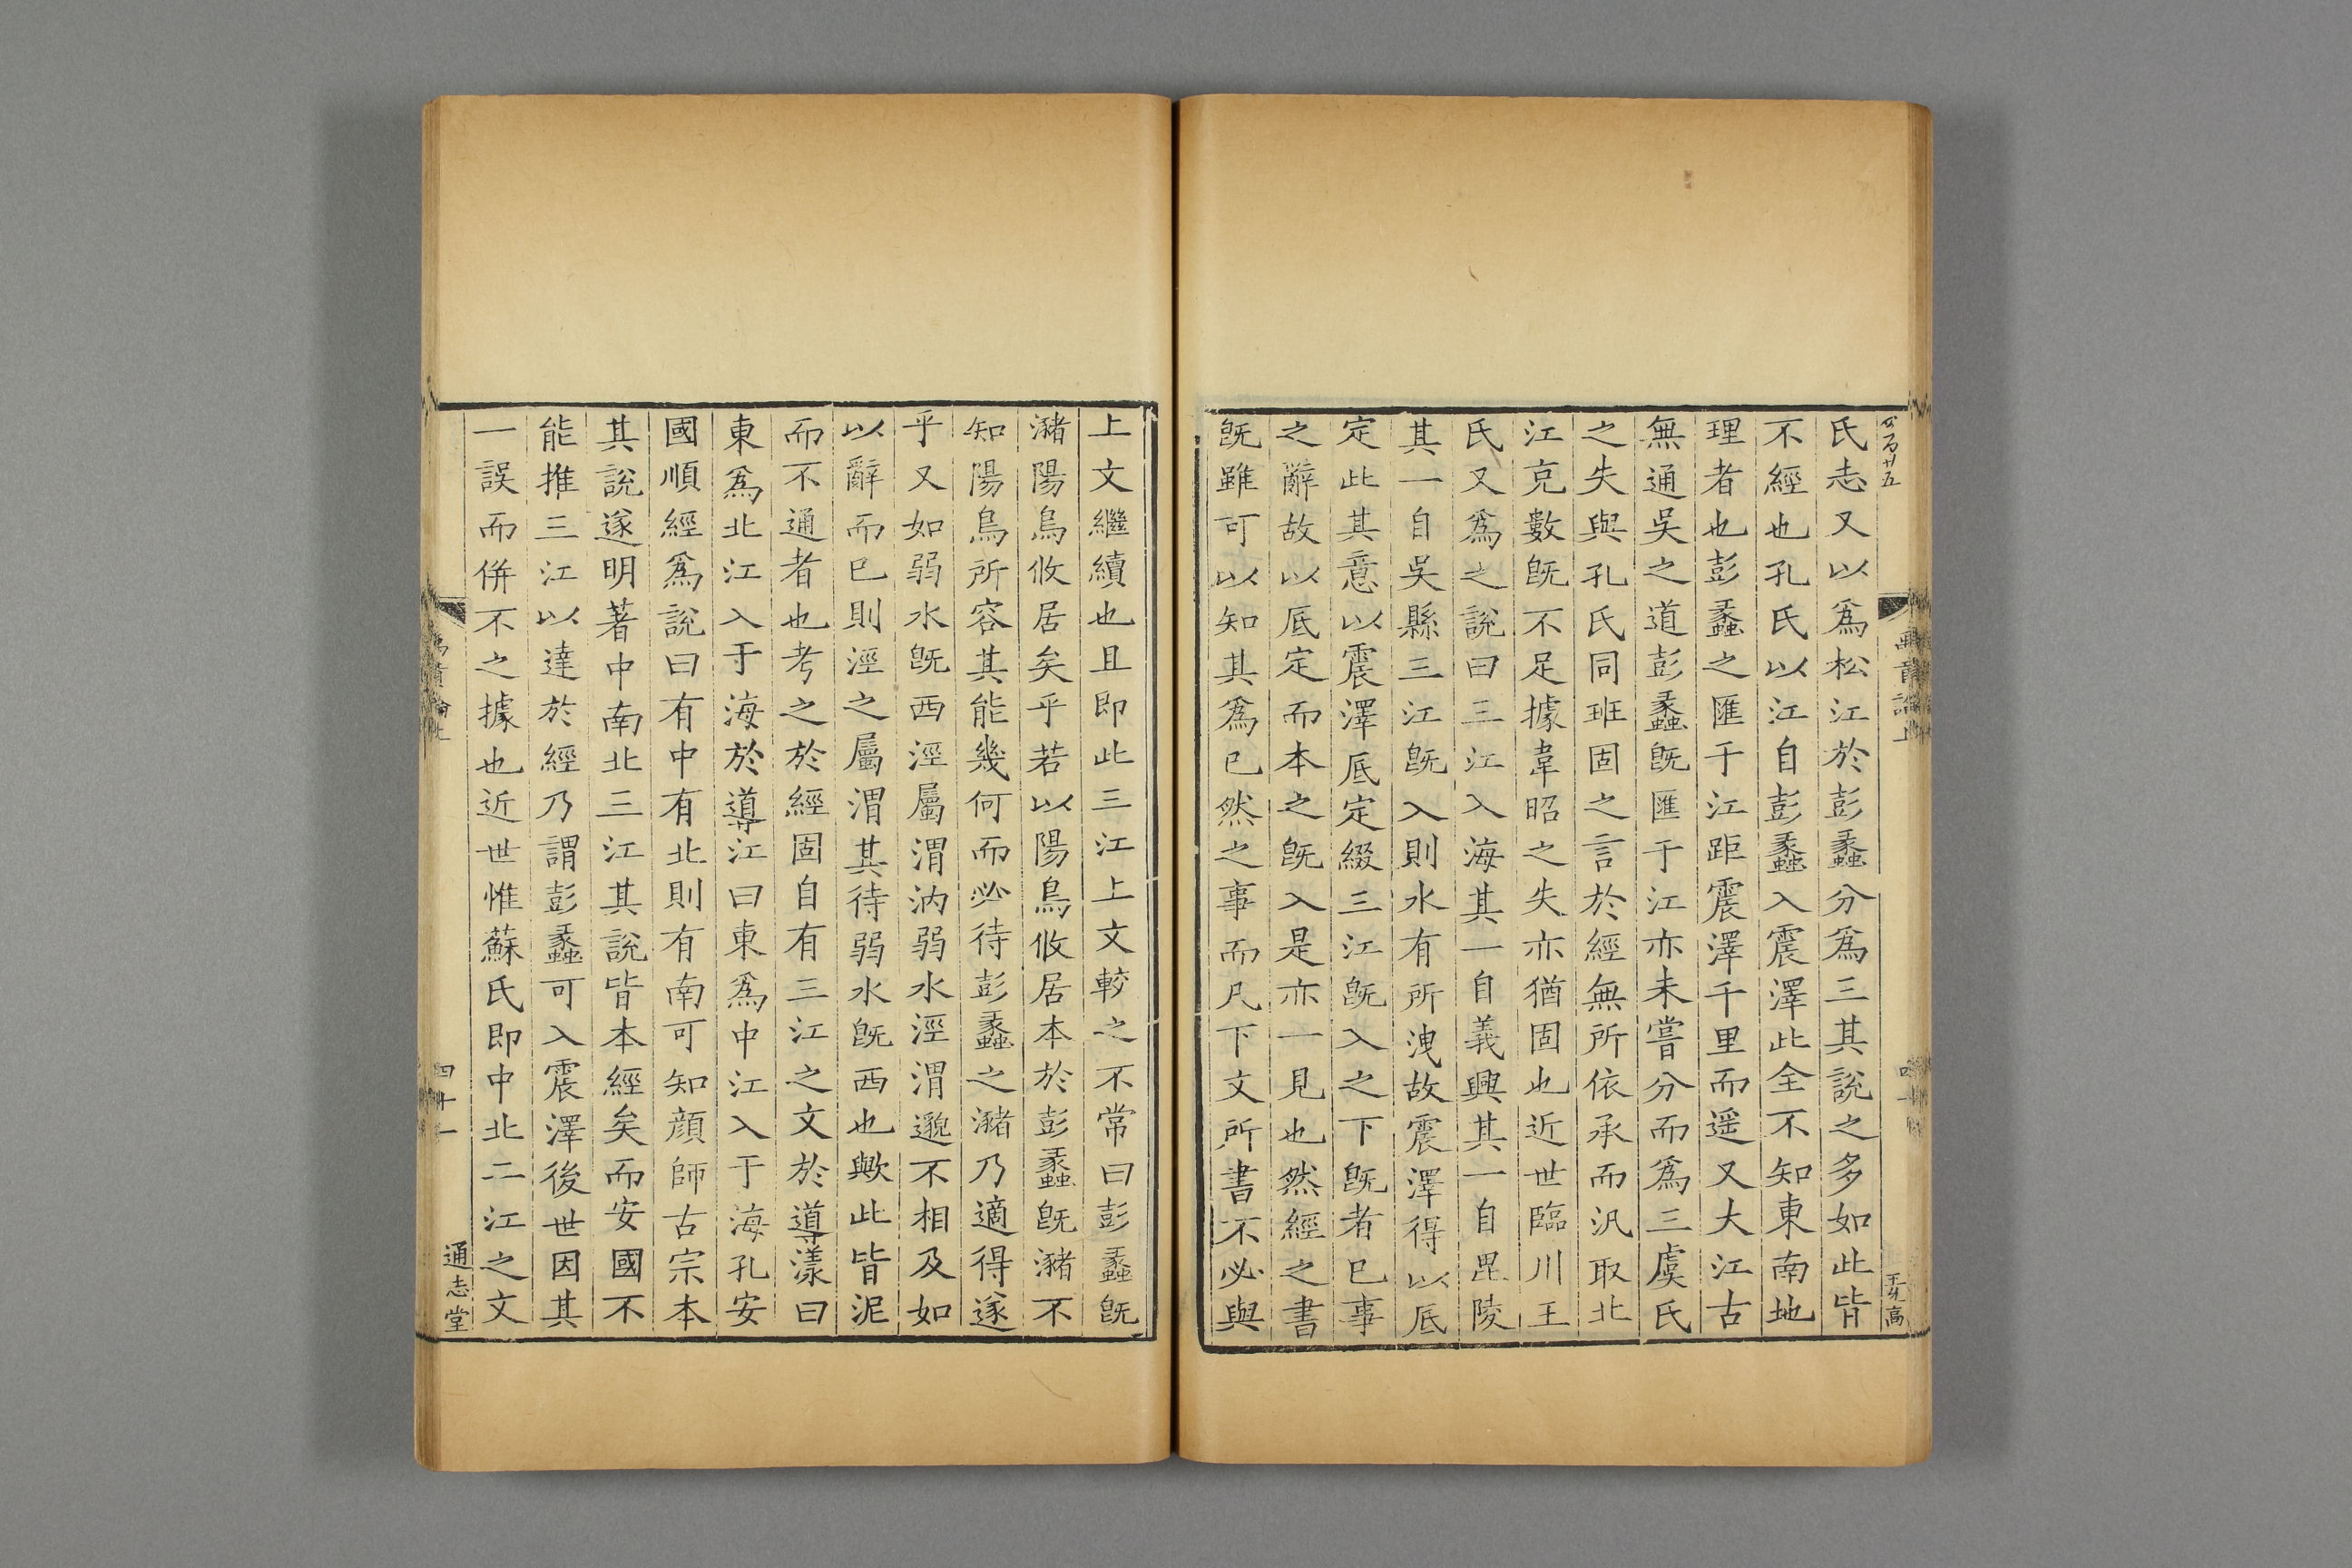 氏志又以爲松江於彭蠡分爲三其說之多如此皆
不經也孔氏以江自彭蠡入震澤此全不知東南地
理者也彭蠡之匯于江距震澤千里而遥又大江古
無通吳之道彭蠡旣匯于江亦未嘗分而爲三虞氏
之失與孔氏同班固之言於經無所依承而汎取北
江克數旣不足據韋昭之失亦猶固也近世臨川王
氏又爲之說曰三江入海其一自義興其一自毘陵
其一自吳縣三江旣入則水有所洩故震澤得以底
定此其意以震澤底定綴三江旣入之下旣者已事
之辭故以底定而本之旣入是亦一見也然經之書
旣雖可以知其爲已然之事而凡下文所書不必與
上文繼續也且即此三江上文較之不常曰彭蠡旣
瀦陽鳥攸居矣乎若以陽鳥攸居本於彭蠡旣瀦不
知陽鳥所容其能幾何而必待彭蠡之瀦乃適得遂
乎又如弱水旣西涇屬渭汭弱水涇渭邈不相及如
以辭而已則涇之屬渭其待弱水旣西也歟此皆泥
而不通者也考之於經固自有三江之文於導漾曰
東爲北江入于海於導江曰東爲中江入于海孔安
國順經爲說曰有中有北則有南可知顔師古宗本
其說遂明著中南北三江其說皆本經矣而安國不
能推三江以達於經乃謂彭蠡可入震澤後世因其
一誤而併不之據也近世惟蘇氏即中北二江之文
四十一
通志堂